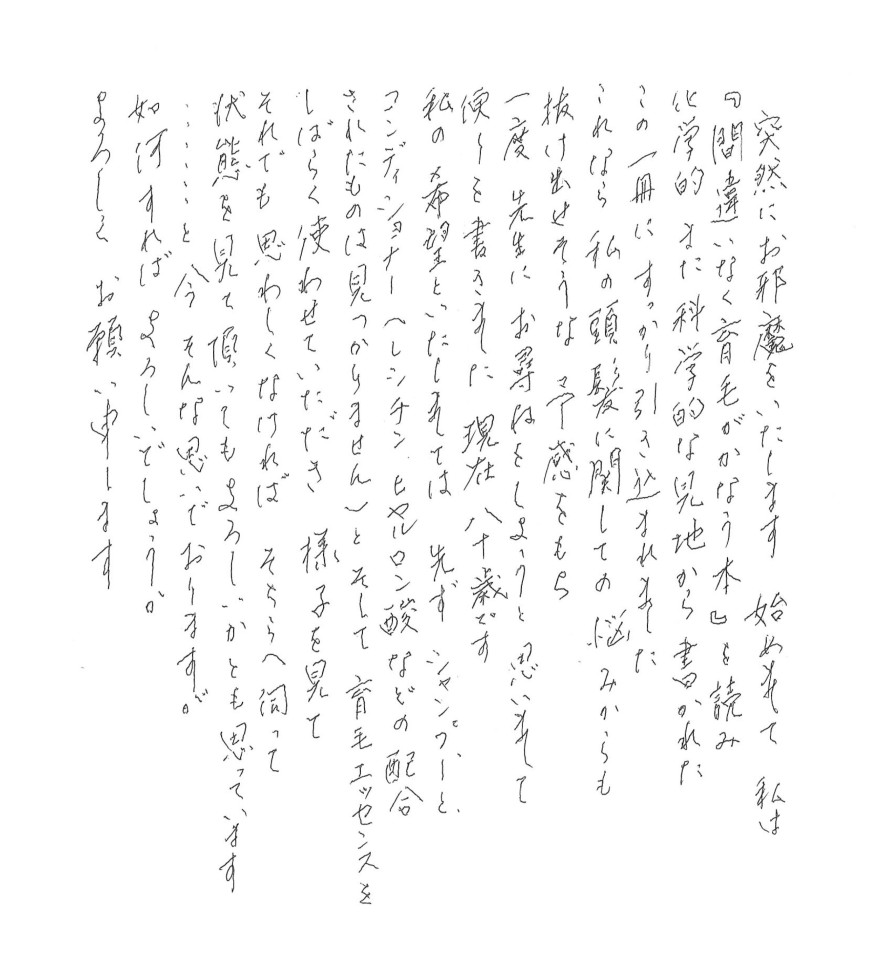 突然にお邪魔をいたします 始めまして 私は
『間違いなく育毛がかなう本』を読み
化学的 また科学的な見地から書かれた
この一冊にすっかり引き込まれました
これなら 私の頭髪に関しての 悩みからも
抜け出せそうな 予感をもち
一度 先生に お尋ねをしようと 思いまして
便りを書きました 現在 八十歳です
私の希望といたしましては 先ず シャンプーと、
コンディショナー(レシチン ヒヤルロン酸などの配合
されたものは見つかりません)と そして 育毛エッセンスを
しばらく使わせていただき 様子を見て
それでも 思わしくなければ そちらへ伺って
状態を見て頂いてもよろしいかとも思っています
……と 今 そんな思いでおりますが
如何すれば よろしいでしょうか
よろしく お願い申します